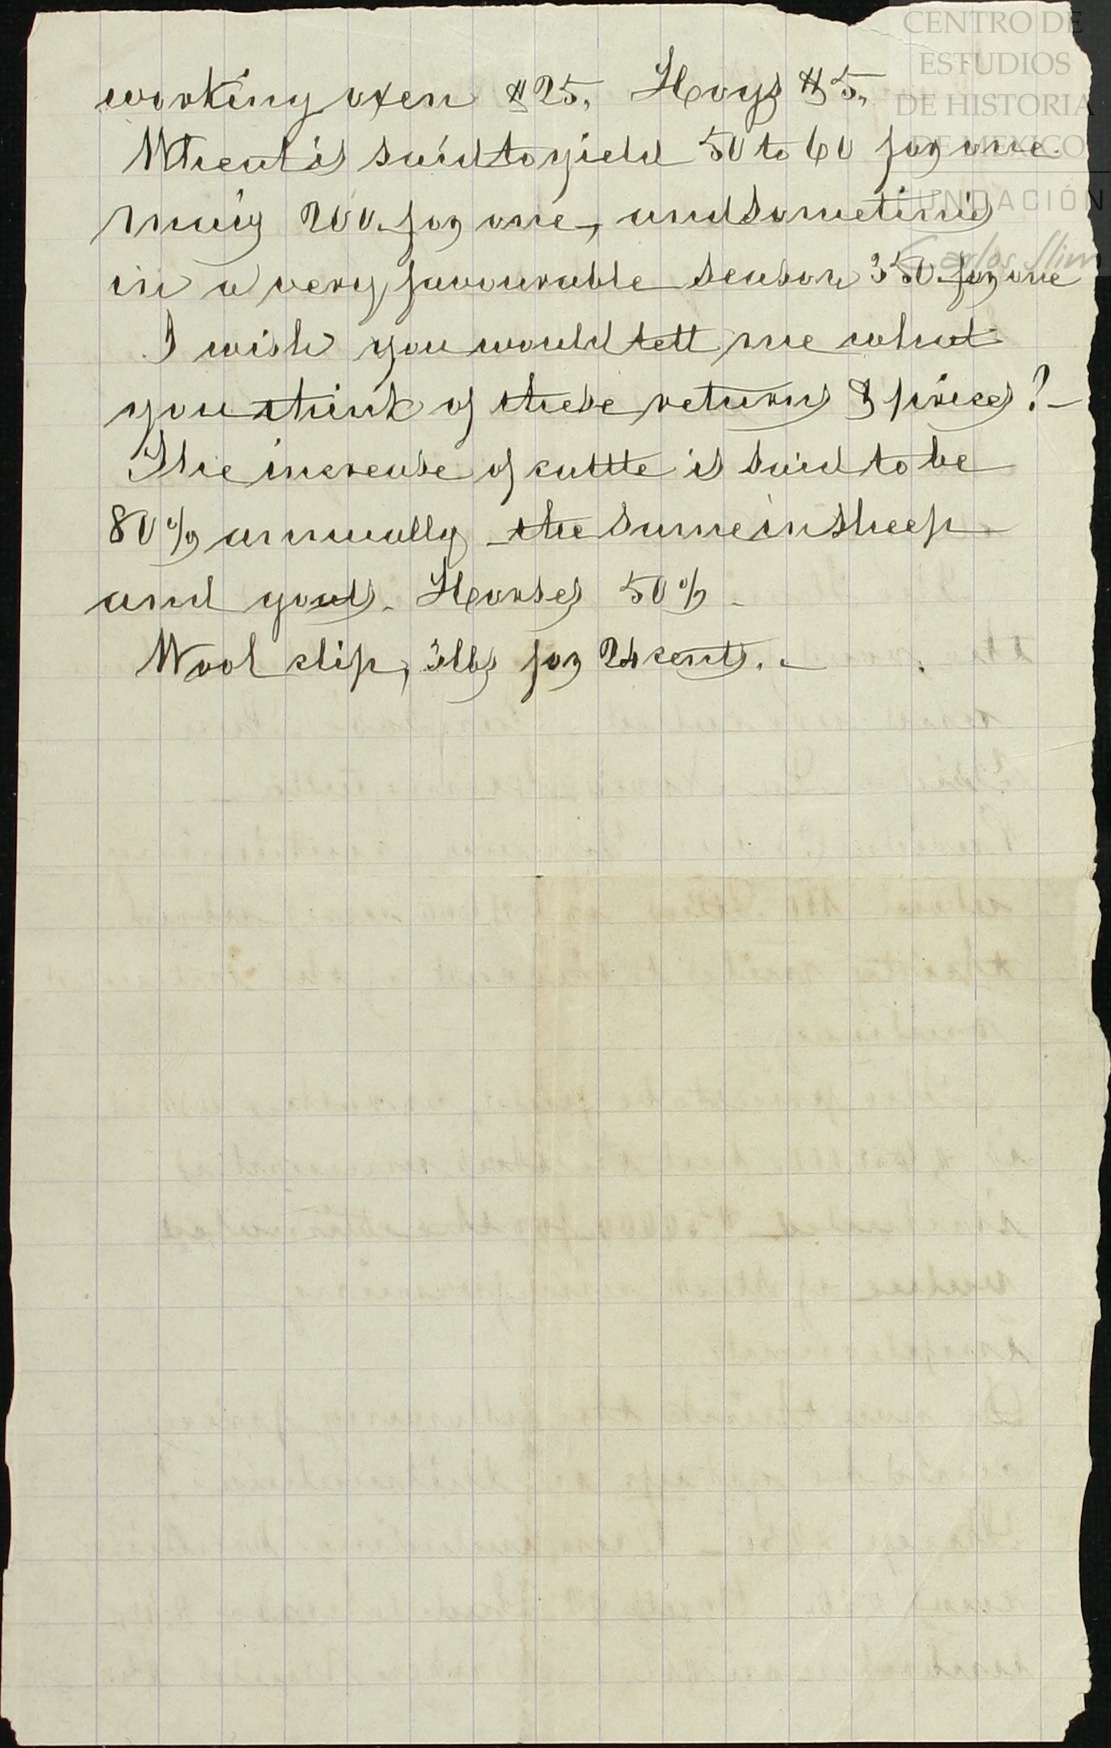 CENTRO DE
ESTUDIOS
DE HISTORIA
DE MEXICO
FUNDACIÓN
Carlos Slim
working oxen $25, Hogs $5,
Wheat is said to yield 50 to 60 for one.
maiz 200. for one, and sometimes
in a very favourable season 350. for one
I wish you would tell me what
you think of these returns & prices? -
The increase of cattle is said to be
80% annually - the same in sheep
and goats. Horses 50% -
Wool clip, 3lbs for 24 cents. -